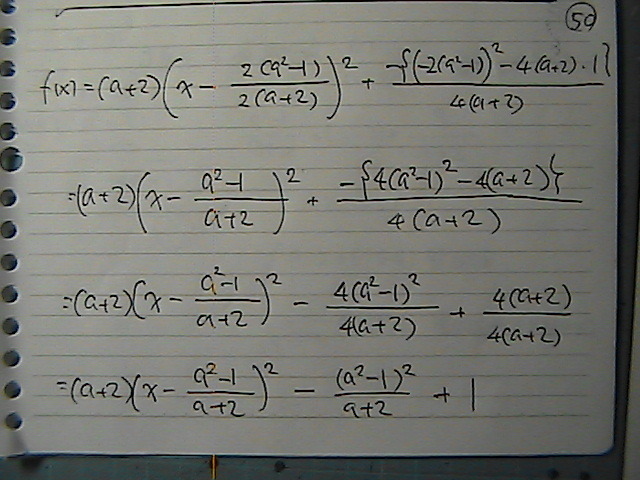 59
f(x) = (a+2)(x - 2(a²-1)/2(a+2))² + -{(-2(a²-1))² - 4(a+2)·1}/4(a+2)
= (a+2)(x - a²-1/a+2)² + -{4(a²-1)² - 4(a+2)}/4(a+2)
= (a+2)(x - a²-1/a+2)² - 4(a²-1)²/4(a+2) + 4(a+2)/4(a+2)
= (a+2)(x - a²-1/a+2)² - (a²-1)²/a+2 + 1